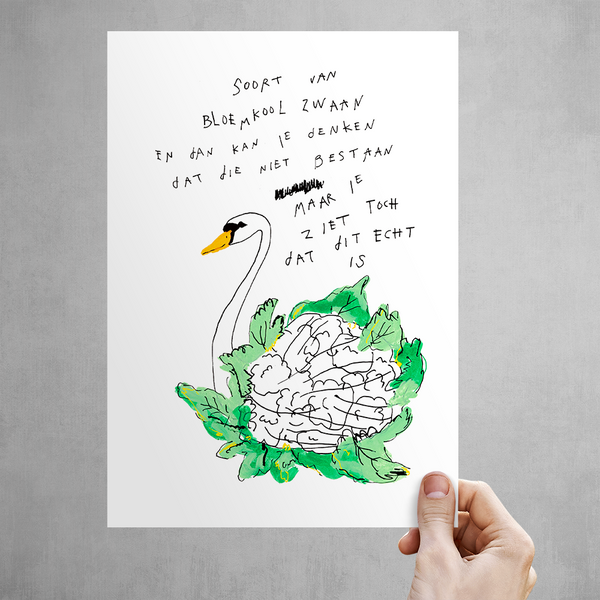 SOORT VAN
BLOEMKOOL ZWAAN
EN DAN KAN JE DENKEN
DAT DIE NIET BESTAAN
MAAR JE
ZIET TOCH
DAT DIT ECHT
IS